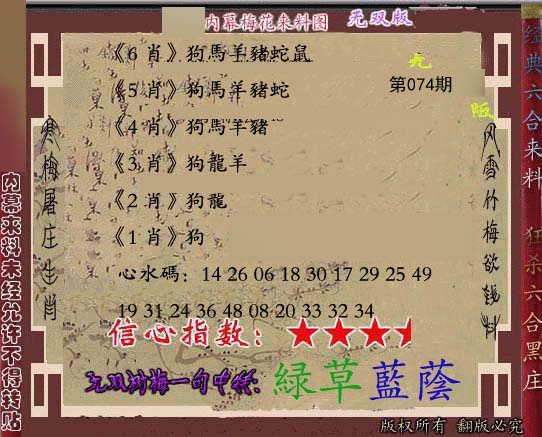 内幕梅花来料图 无双版
《6 肖》狗馬羊豬蛇鼠
《5 肖》狗馬羊豬蛇
第074期
《4 肖》狗馬羊豬
《3 肖》狗龍羊
《2 肖》狗龍
《1 肖》狗
心水碼：14 26 06 18 30 17 29 25 49
19 31 24 36 48 08 20 33 32 34
信心指数：★★★
一句中特：綠草藍蔭
版权所有 翻版必究
寒梅屠庄生肖
风雪竹梅欲钱料
内幕来料未经允许不得转贴
经典六合来料
狂杀六合黑庄